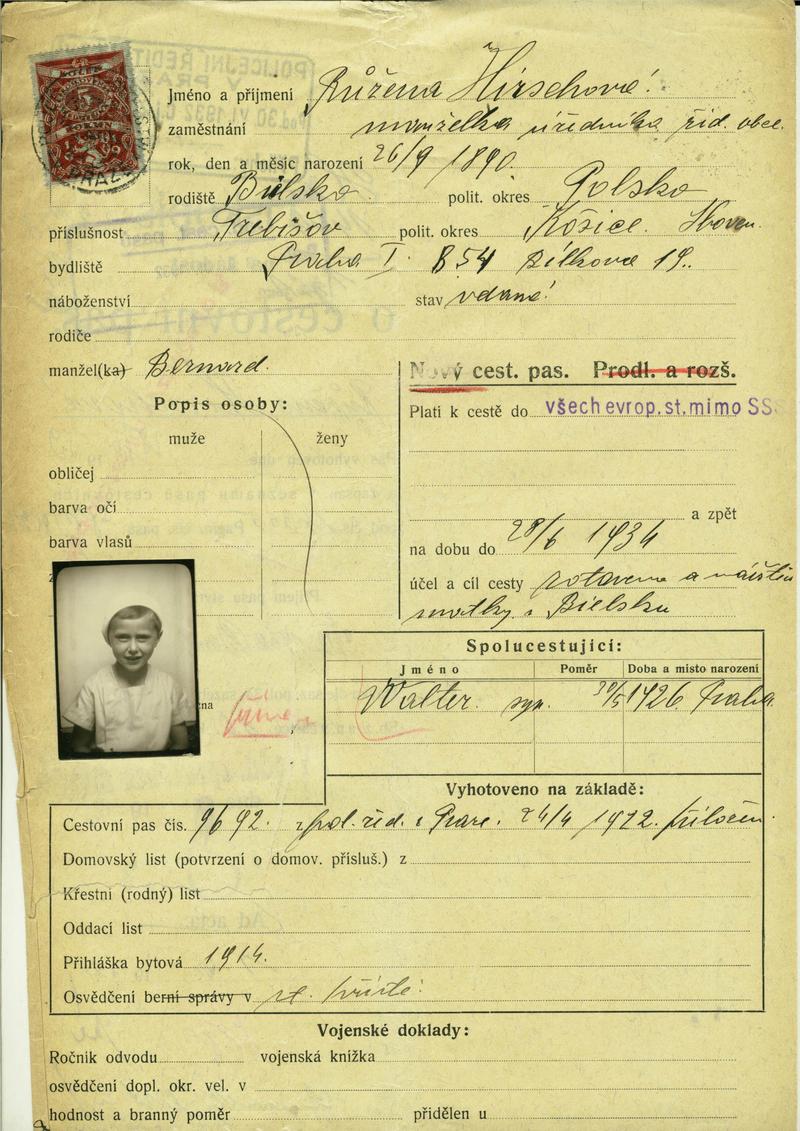 Jméno a příjmení Růžena Hirschová
zaměstnání manželka úředníka žid. obce.
rok, den a měsíc narození 26/9 1890
rodiště Bielsko polit. okres Polsko
příslušnost Trebišov polit. okres Košice. Sloven.
bydliště Praha I. 854 Bílkova 19.
náboženství stav vdaná
rodiče
manžel(ka) Bernard.
Nový cest. pas. Prodl. a rozš.
Popis osoby:
Platí k cestě do všech evrop. st. mimo SS
muže ženy
obličej
barva očí
a zpět
barva vlasů
na dobu do 28/6 1934
účel a cíl cesty zotavená a návštěva
matky v Bielsku
Spolucestující:
Jméno Poměr Doba a místo narození
Walter. syn. 30/5 1926 Praha
Vyhotoveno na základě:
Cestovní pas čís. 9692. pol. řed. v Praze. 24/4 1922.
Domovský list (potvrzení o domov. přísluš.) z
Křestní (rodný) list
Oddací list
Přihláška bytová 1914.
Osvědčení berní správy v
Vojenské doklady:
Ročník odvodu vojenská knížka
osvědčení dopl. okr. vel. v
hodnost a branný poměr přidělen u